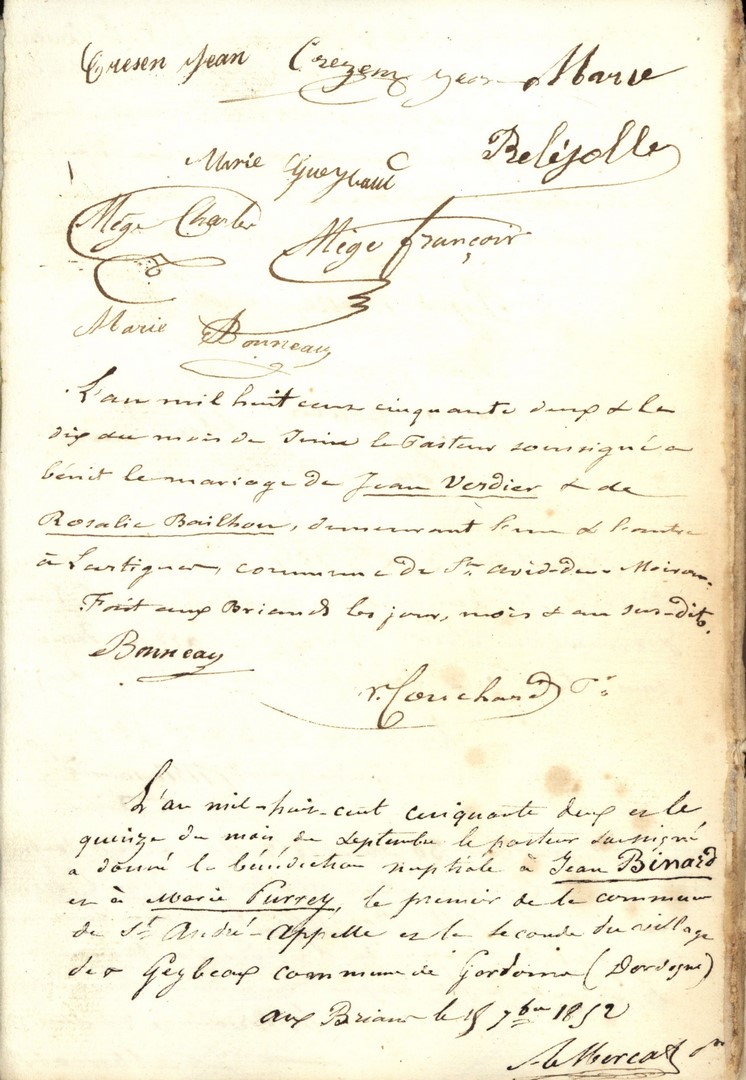 Cresen Jean Crezem Jean Marie
Marie Gueybaud
Beléjolle
Mège Charles
Mège François
Marie Bonneau
L'an mil huit cent cinquante deux & le
dix du mois de Juin le Pasteur soussigné a
bénit le mariage de Jean Verdier & de
Rosalie Bailhou, demeurant l'un & l'autre
à Lartigue, commune de St. avid-du-Moiron.
Fait aux Briands les jour, mois & an sus-dits.
Bonneau
r. Couchard Pr.
L'an mil-huit-cent cinquante deux et le
quinze du mois de Septembre le pasteur soussigné
a donné la bénédiction nuptiale à Jean Binard
et à Marie Purrey, le premier de la commune
de St André-Appelle et la seconde du village
des Geybeaux commune de (Dordogne)
aux Briands le 15 7bre 1852